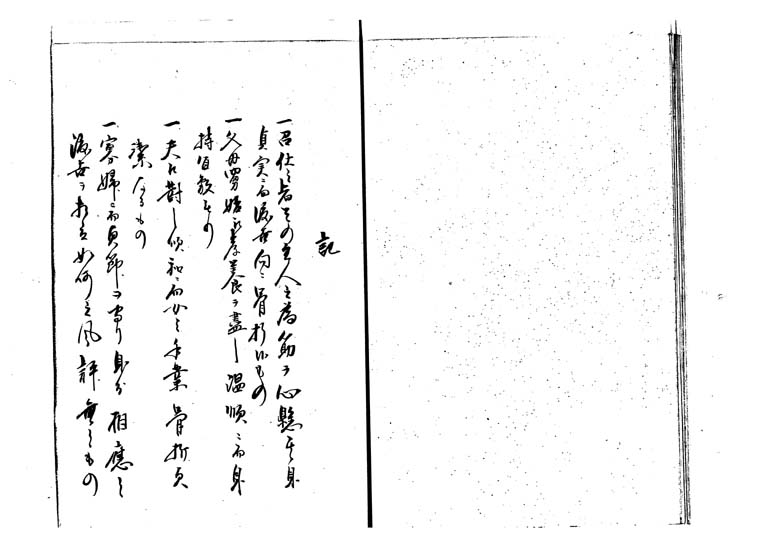 記
一召仕之者その主人之為筋ヲ心懸其身
貞実ニ而渡世向ニ骨折候もの
一父母舅姑江孝養ヲ盡し温順ニ而身
持宜敷もの
一夫江對し順和ニ而女之手業骨折貞
潔なるもの
一寡婦ニ而貞節ヲ守り身分相應之
渡世ヲ相立如何之風評無之もの